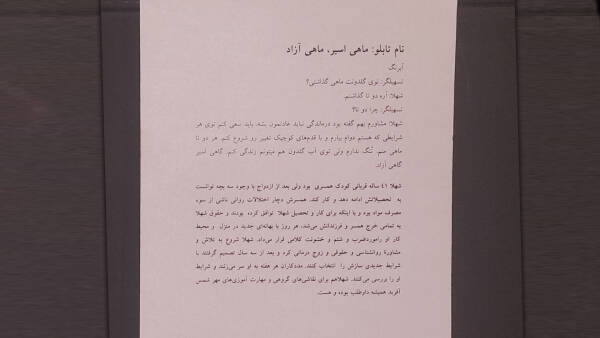 نام تابلو: ماهی اسیر، ماهی آزاد
آبرنگ
تسهیلگر: توی گلدونت ماهی گذاشتی؟
شهلا: آره دو تا گذاشتم.
تسهیلگر: چرا دو تا؟
شهلا: مشاورم بهم گفته بود درماندگی نباید عادتمون بشه. باید سعی کنم توی هر
شرایطی که هستم دوام بیارم و با قدم‌های کوچیک تغییر رو شروع کنم. هر دو تا
ماهی منم. تُنگ ندارم ولی توی آب گلدون هم میتونم زندگی کنم. گاهی اسیر
گاهی آزاد.
شهلا ٤١ ساله قربانی کودک همسری بود ولی بعد از ازدواج با وجود سه بچه توانست
به تحصیلاتش ادامه دهد و کار کند. همسرش دچار اختلالات روانی ناشی از سوء
مصرف مواد بود و با اینکه برای کار و تحصیل شهلا توافق کرده بودند و حقوق شهلا
به تمامی خرج همسر و فرزندانش می‌شد، هر روز با بهانه‌ای جدید در منزل و محیط
کار او را‌موردضرب و شتم و خشونت کلامی قرار می‌داد. شهلا شروع به تلاش و
مشاورهٔ روانشناسی و حقوقی و زوج درمانی کرد و بعد از سه سال تصمیم گرفتند با
شرایط جدیدی سازش را انتخاب کنند. مددکاران هر هفته به او سر می‌زنند و شرایط
او را بررسی می‌کنند. شهلاهم برای نقاشی‌های گروهی و مهارت آموزی‌های مهر شمس
آفرید همیشه داوطلب بوده و هست.